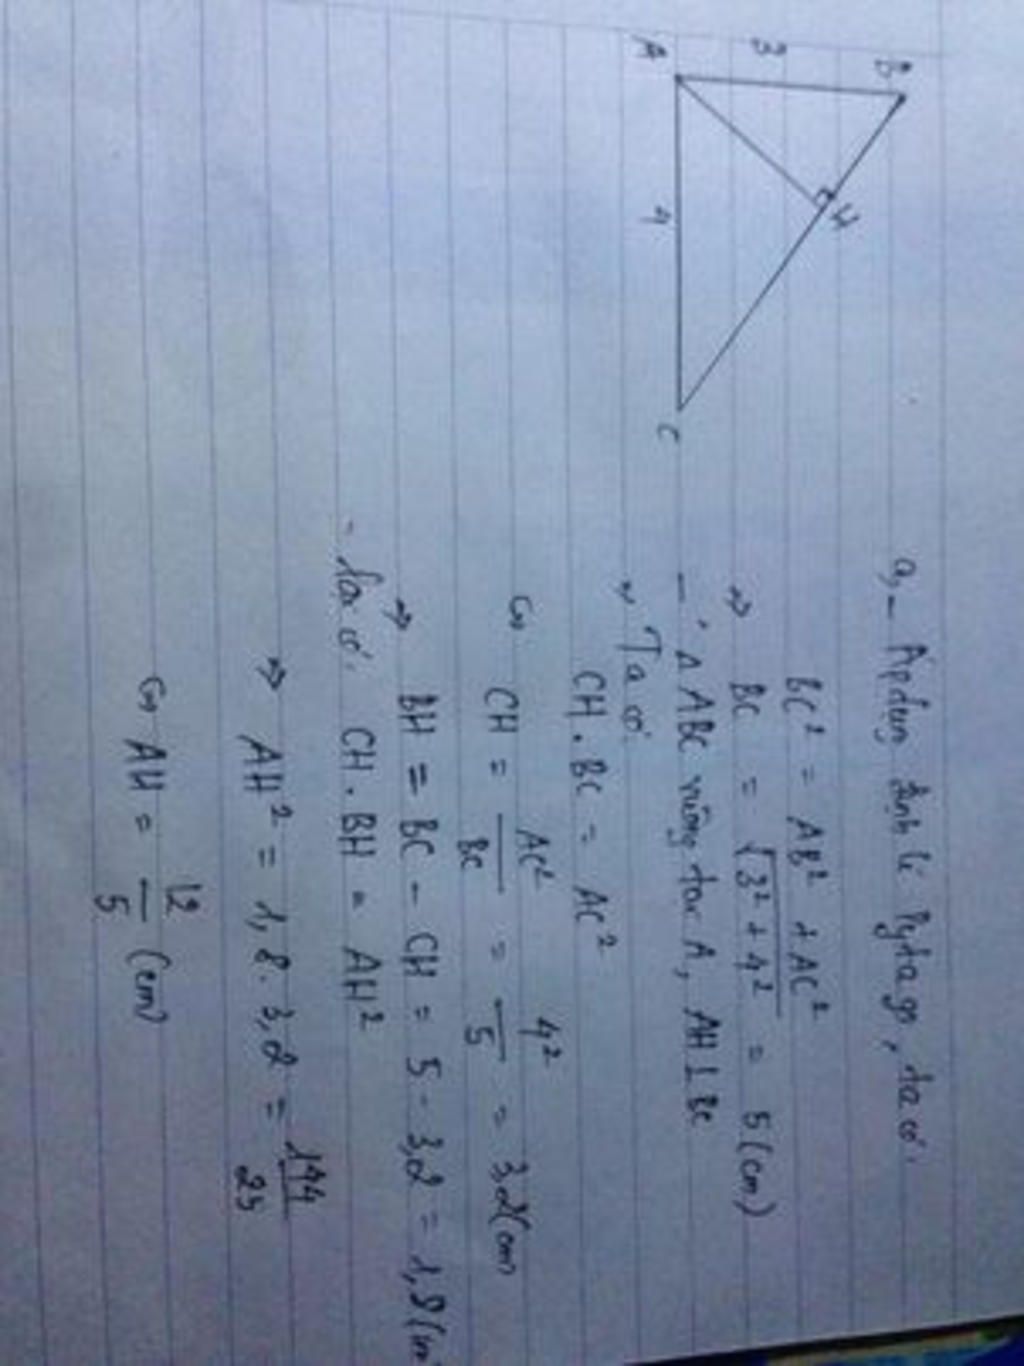 B
3
H
A
4
C
a, - Áp dụng định lí Pytago, ta có:
BC² = AB² + AC²
⇒ BC = √3² + 4² = 5 (cm)
- ΔABC vuông tại A, AH ⊥ BC
⇒ Ta có:
CH . BC = AC²
⇔ CH = AC²/BC = 4²/5 = 3,2 (cm)
⇒ BH = BC - CH = 5 - 3,2 = 1,8 (cm
- Ta có: CH . BH = AH²
⇒ AH² = 1,8 . 3,2 = 144/25
⇔ AH = 12/5 (cm)